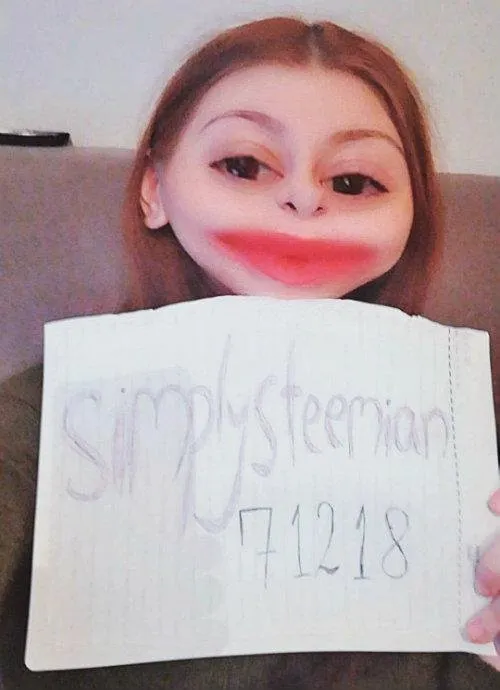 Simplysteemian
71218